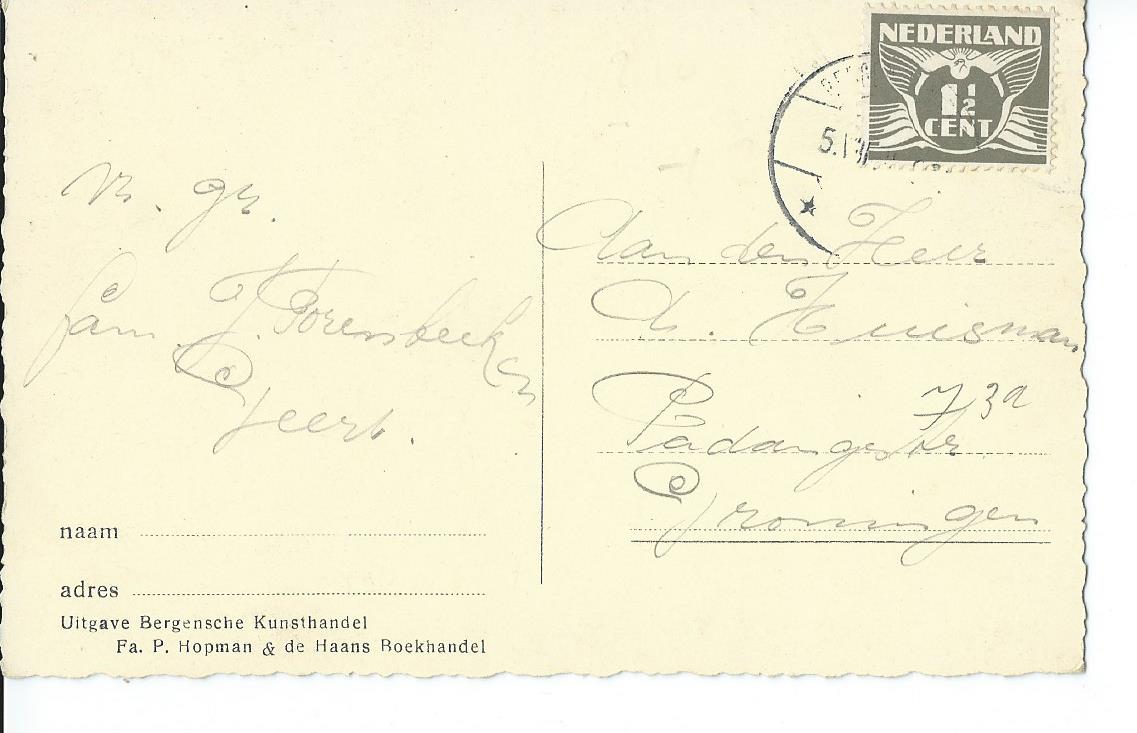 NEDERLAND
1½
CENT
vr. gr.
fam. J.
Geert.
Aan den Heer
Huisman
Padangstr. 73a
Groningen
naam
adres
Uitgave Bergensche Kunsthandel
Fa. P. Hopman & de Haans Boekhandel